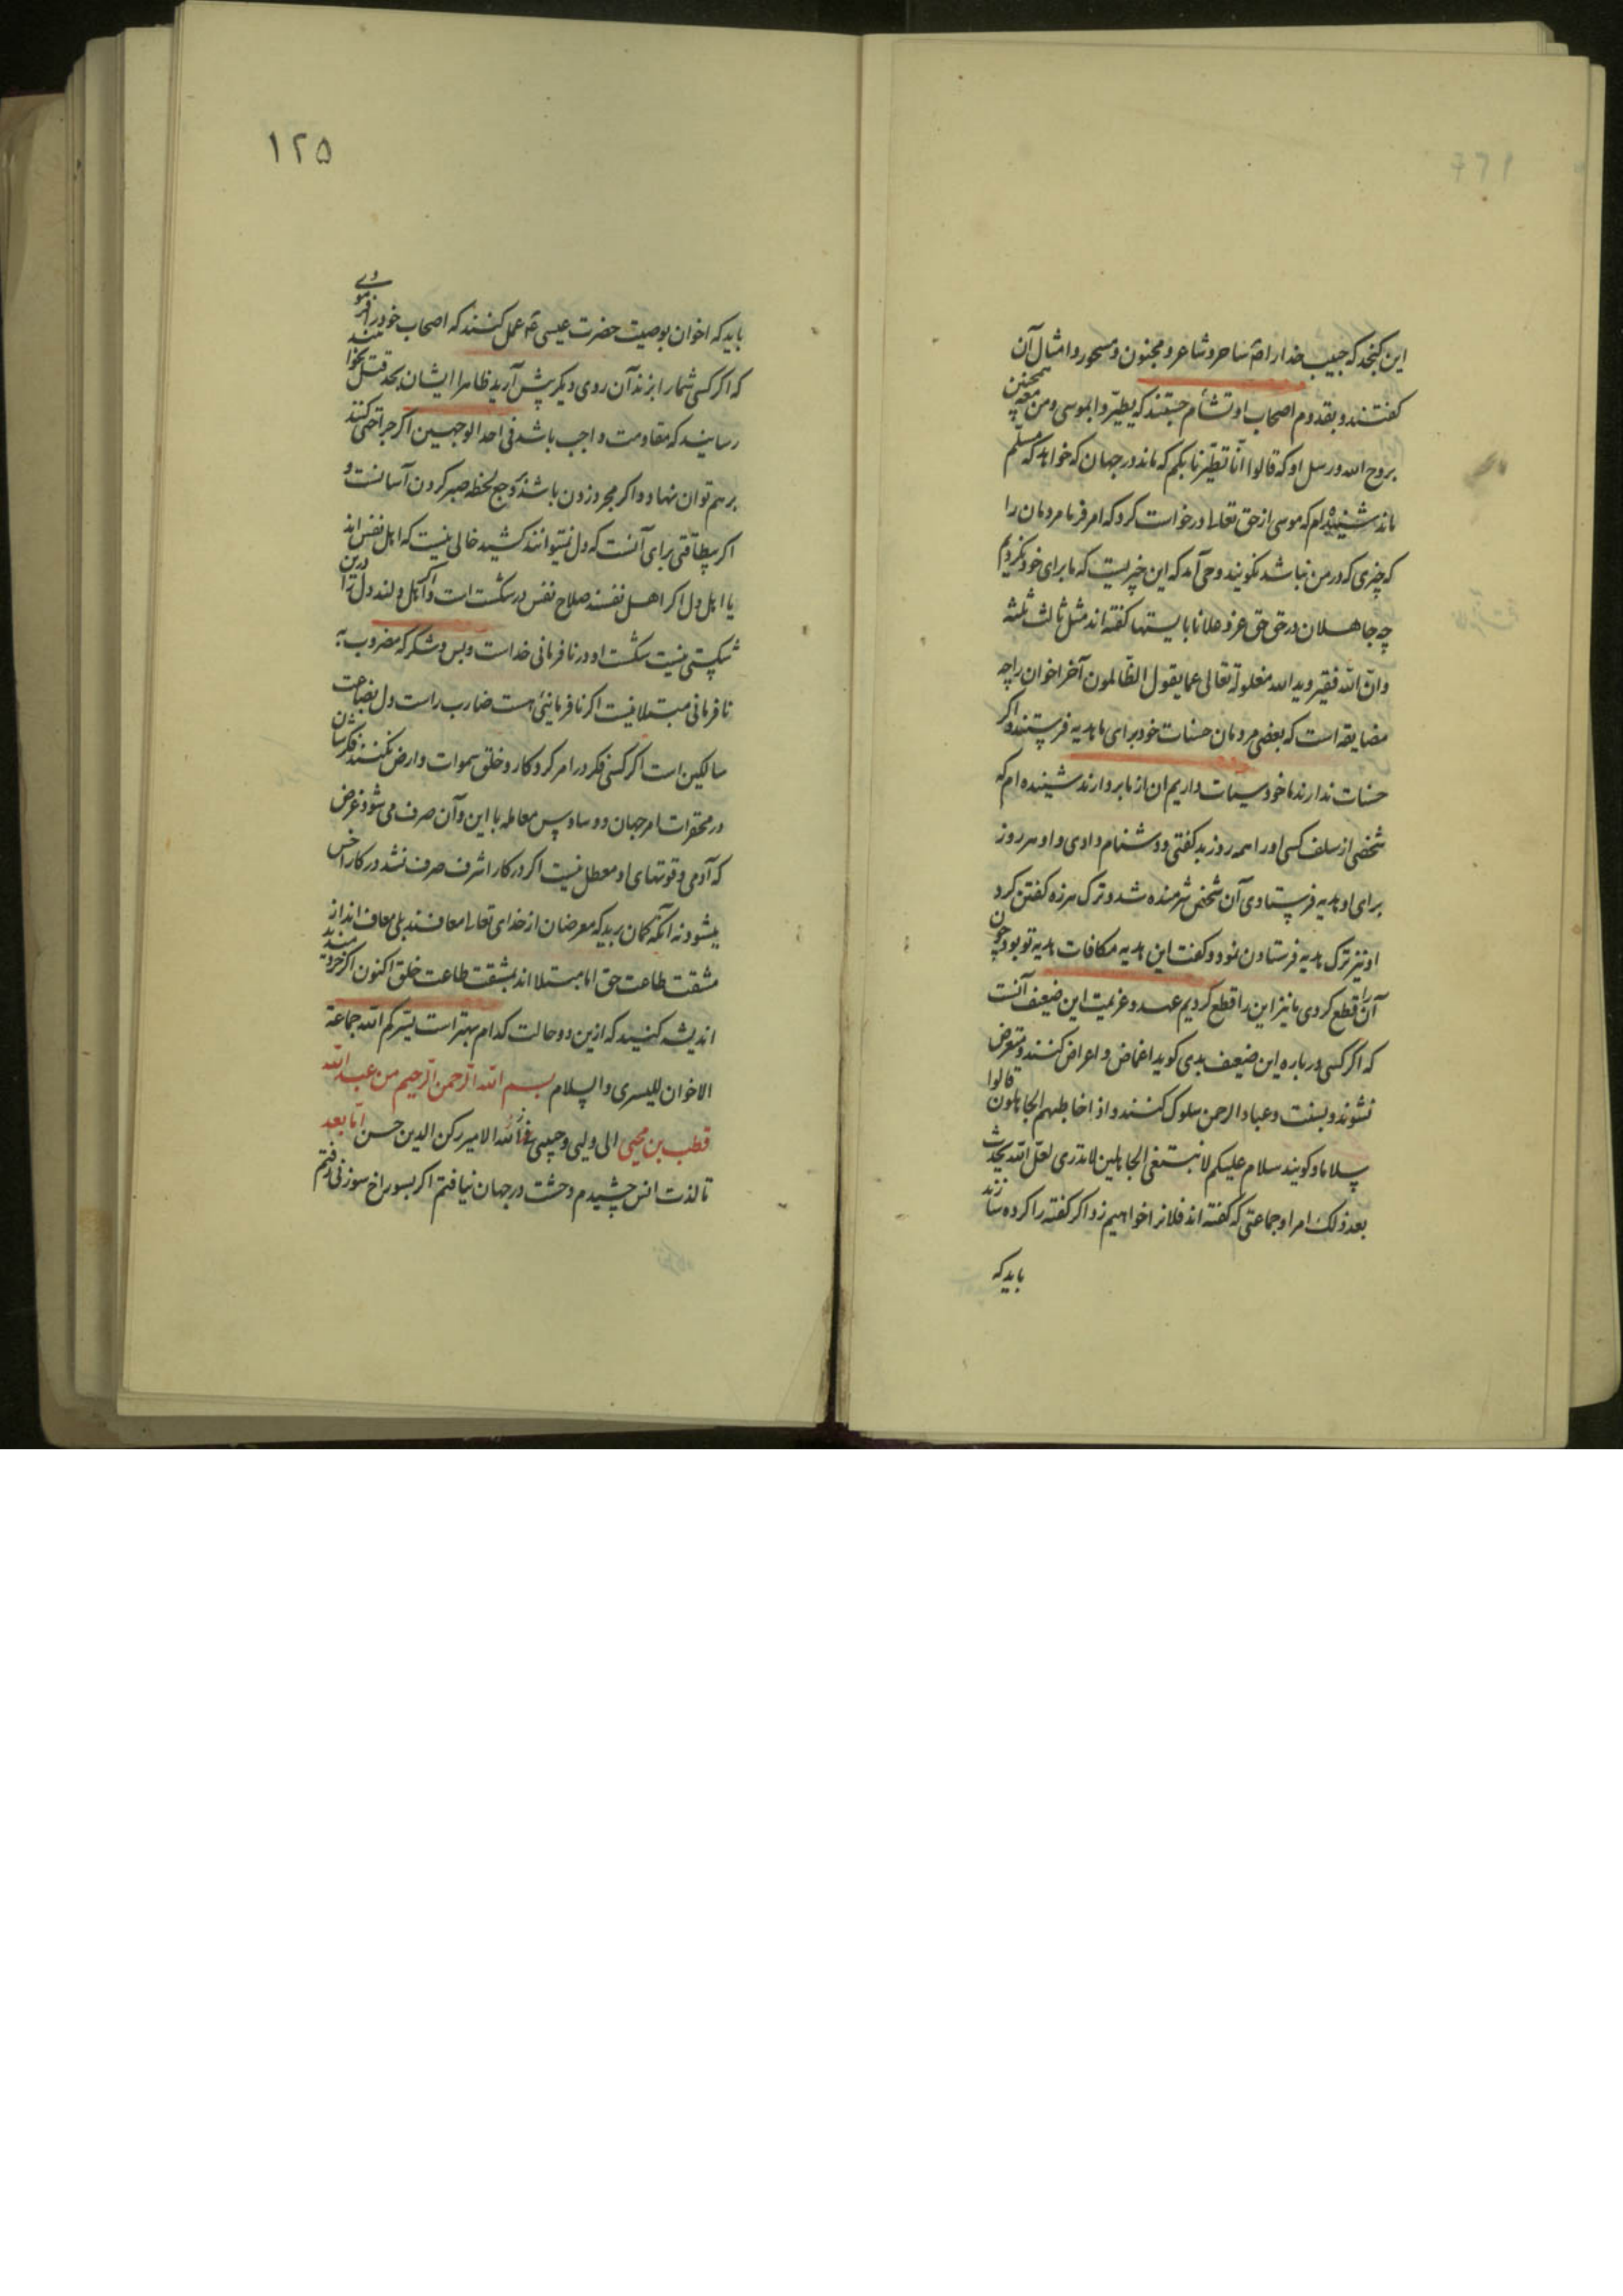 این کنجد که حبیب خدا را ص ساحر و شاعر و مجنون و مسحور و امثال آن
گفتند و بقدوم اصحاب او تشأم جستند که یطیروا بموسی و من معه همچنین
بروح الله و رسل او که قالوا انا تطیرنا بکم که ماند در جهان که خواهد که مسلم
ماند شنیده‌ام که موسی از حق تعالی درخواست کرد که امر فرما مردمان را
که چیزی که در من نباشد نگویند وحی آمد که این چیزیست که ما برای خود نکردیم
چه جاهلان در حق حق عز و علا نابایستها گفته‌اند مثل ثالث ثلثه
و ان الله فقیر و ید الله مغلولة تعالی عما یقول الظالمون آخر اخوان را چه
مضایقه است که بعضی مردمان حسنات خود برای ما هدیه فرستند و اگر
حسنات ندارند ما خود سیئات داریم آن از ما بردارند شنیده‌ام که
شخصی از سلف کسی او را همه روز بد گفتی و دشنام دادی و او هر روز
برای او هدیه فرستادی آن شخص شرمنده شد و ترک هرزه گفتن کرد
او نیز ترک هدیه فرستادن نمود و گفت این هدیه مکافات هدیه تو بود چون
آن را قطع کردی ما نیز این را قطع کردیم عهد و عزیمت این ضعیف آنست
که اگر کسی درباره این ضعیف بدی گوید اغماض و اعراض کنند و متعرض
نشوند و بسنت و عباد الرحمن سلوک کنند و اذا خاطبهم الجاهلون قالوا
سلاما و گویند سلام علیکم لا نبتغی الجاهلین لا تدری لعل الله یحدث
بعد ذلک امرا و جماعتی که گفته‌اند فلان را خواهیم زد اگر گفته را کرده سازند
باید که
۱۲۵
باید که اخوان بوصیت حضرت عیسی ع عمل کنند که اصحاب خود را فرمودی
که اگر کسی شما را بزند آن روی دیگر پیش آرید ظاهرا ایشان بحد قتل نخواهند
رسانید که مقاومت واجب باشد فی احد الوجهین اگر جراحتی کنند
برهم توان نهاد و اگر مجرد زدن باشد وجع لحظه صبر کردن آسانست و
اگر بیطاقتی برای آنست که دل نمیتوانند کشید خالی نیست که اهل نفس‌اند
یا اهل دل اگر اهل نفسند صلاح نفس در شکست است و اگر اهل دلند دل را درین
شکستی نیست شکست او در نافرمانی خداست و بس و شکر که مضروب به
نافرمانی مبتلا نیست اگر نافرمانیی هست ضارب راست دل بضاعت
سالکین است اگر کسی فکر در امر کردکار و خلق سموات و ارض نکنند فکرشان
در محقرات امر جهان و وساوس معامله با این و آن صرف می‌شود غرض
که آدمی و قوتهای او معطل نیست اگر در کار اشرف صرف نشد در کار اخس
میشود نه آنکه گمان برید که معرضان از خدای تعالی معافند بلی معاف‌اند از
مشقت طاعت حق اما مبتلااند بمشقت طاعت خلق اکنون اگر خردمندید
اندیشه کنید که ازین دو حالت کدام بهتر است یسرکم الله جماعة
الاخوان للیسری والسلام بسم الله الرحمن الرحیم من عبد الله
قطب بن محیی الی ولیی و حبیبی فی الله الامیر رکن الدین حسن اما بعد
تا لذت انس چشیدم وحشت در جهان نیافتم اگر بسوراخ سوزنی رفتم